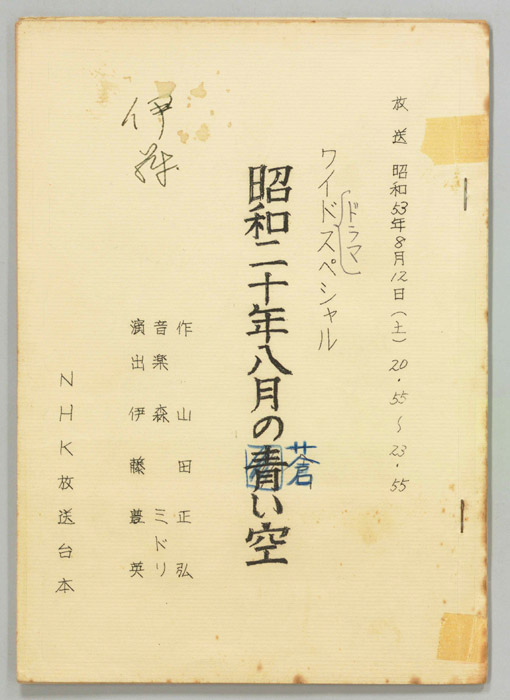 放送 昭和53年8月12日(土) 20.55〜23.55
ワイドスペシャル
ドラマ
昭和二十年八月の青い空
蒼
作 山田正弘
音楽 森ミドリ
演出 伊藤豊英
伊藤
NHK放送台本